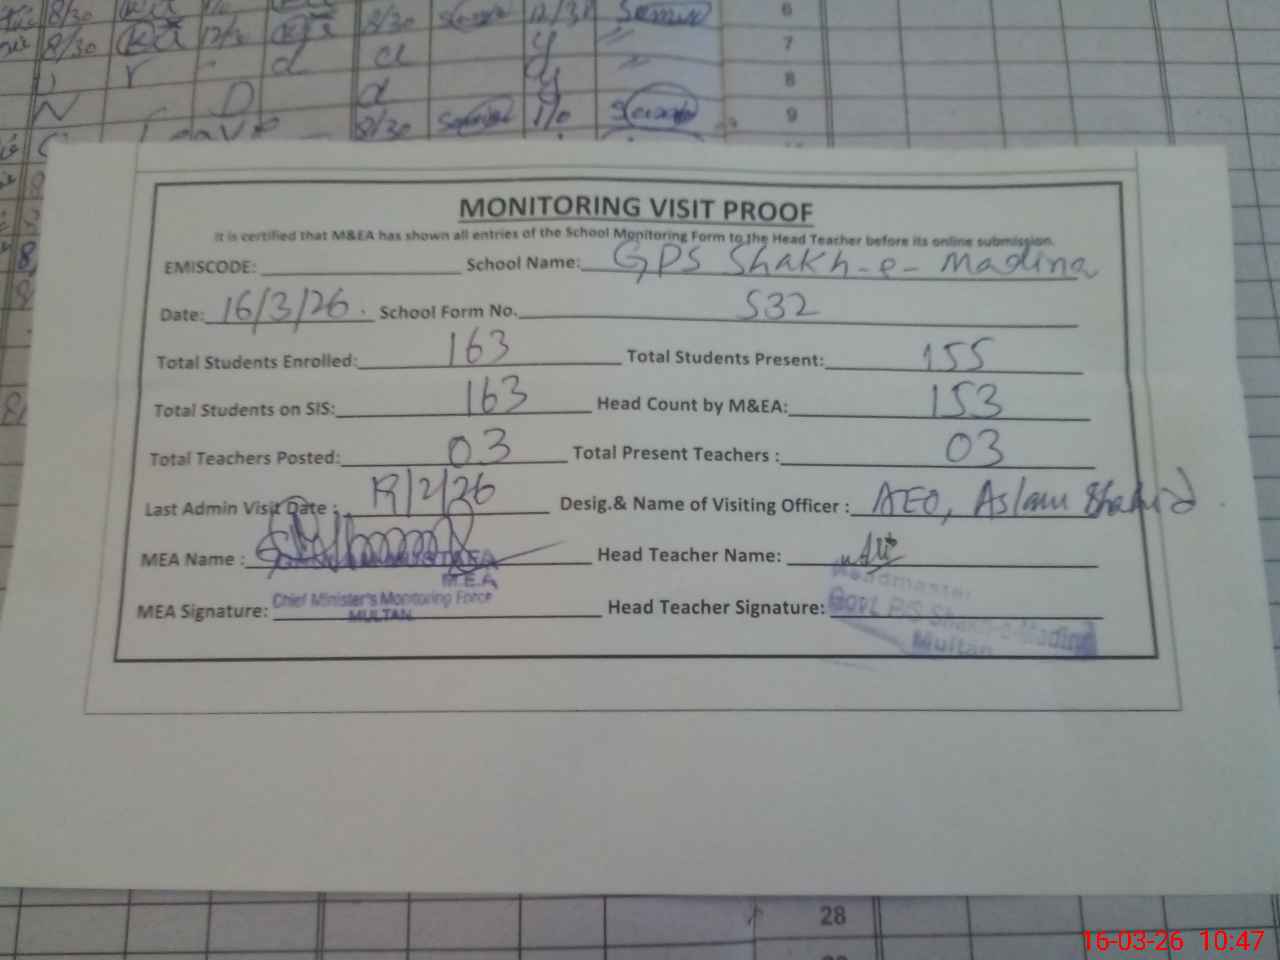 8/30 12/31
8/30 12/3 7
8
8/30 9
MONITORING VISIT PROOF
It is certified that M&EA has shown all entries of the School Monitoring Form to the Head Teacher before its online submission.
EMISCODE: School Name: GPS Shakh-e-Madina
Date: 16/3/26. School Form No. 532
Total Students Enrolled: 163 Total Students Present: 155
Total Students on SIS: 163 Head Count by M&EA: 153
Total Teachers Posted: 03 Total Present Teachers : 03
Last Admin Visit Date : /2/26 Desig.& Name of Visiting Officer : AEO, Aslam Shahid
MEA Name : Head Teacher Name:
M.E.A
Headmaster
MEA Signature: Chief Minister's Monitoring Force Head Teacher Signature: Govt. P/S Shakh-e-Madina
MULTAN
Multan
28
16-03-26 10:47